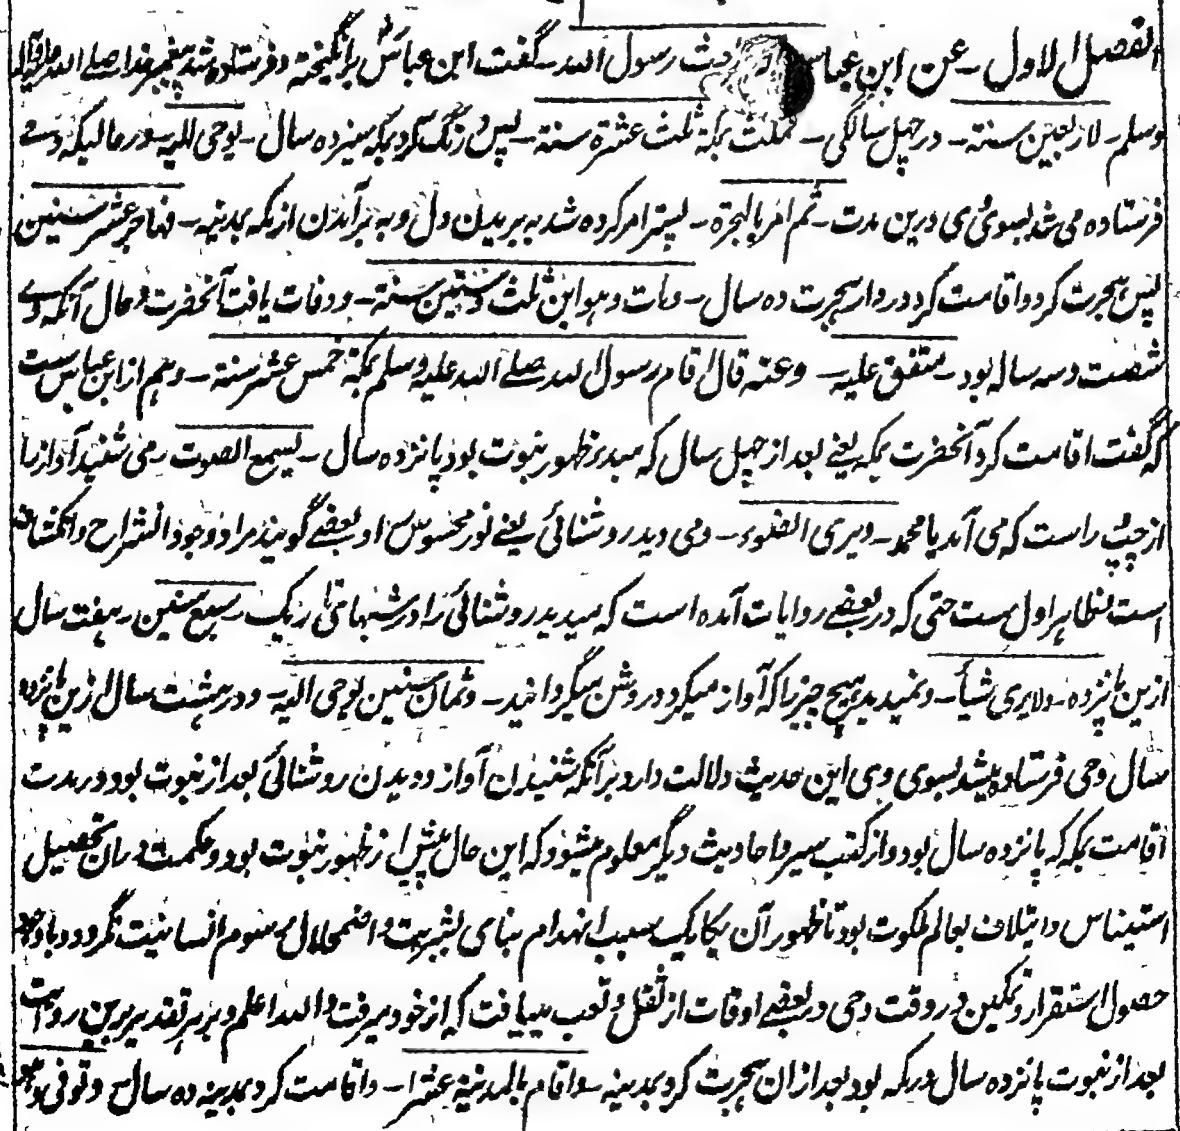 الفصل الاول ـ عن ابن عباس بعث رسول الله ـ گفت ابن عباس برانگیخته و فرستاده شد پیغمبر خدا صلے الله علیه وآله
وسلم ـ لاربعین سنة ـ در چهل سالگی ـ فمکث بمکة ثلث عشرة سنة ـ پس درنگ کرد بمکه سیزده سال ـ یوحی الیه ـ در حالیکه وحے
فرستاده می شد بسوئ وی درین مدت ـ ثم امر بالهجرة ـ پستر امر کرده شد به بریدن دل و به برآمدن از مکه بمدینه ـ فهاجر عشر سنین
پس هجرت کرد و اقامت کرد در دار هجرت ده سال ـ ومات وهو ابن ثلث وستین سنة ـ و وفات یافت آنحضرت و حال آنکه وے
شصت و سه ساله بود ـ متفق علیه ـ وعنه قال اقام رسول الله صلے الله علیه وسلم بمکة خمس عشر سنة ـ و هم از ابن عباس ست
که گفت اقامت کرد آنحضرت بمکه یعنے بعد از چهل سال که مبدء ظهور نبوت بود پانزده سال ـ یسمع الصوت ـ می شنید آواز را
از چپ و راست که می آمد یا محمد ـ ویری الضوء ـ و می دید روشنائی یعنے نور محسوس و بعضے گویند مراد وجود انشراح و انکشاف
است و ظاهر اول ست حتی که در بعضے روایات آمده است که میدید روشنائی را در شبهای تاریک ـ سبع سنین ـ هفت سال
ازین پانزده ـ ولا یری شیأ ـ و نمیدید هیچ چیز را که آواز میکرد و روشن میگردانید ـ وثمان سنین یوحی الیه ـ و در هشت سال ازین پانزده
سال وحی فرستاده میشد بسوی وی این حدیث دلالت دارد برآنکه شنیدن آواز و دیدن روشنائی بعد از نبوت بود در مدت
اقامت بمکه که پانزده سال بود و از کتب سیر و احادیث دیگر معلوم میشود که این حال پیش از ظهور نبوت بود و حکمت دران تحصیل
استیناس و ایتلاف بعالم ملکوت بود تا ظهور آن یکایک سبب انهدام بنای بشریت و اضمحلال رسوم انسانیت نگردد و با وجود
حصول استقرار و تمکین در وقت وحی در بعضے اوقات از ثقل و تعب مییافت که از خود میرفت والله اعلم و بر هر تقدیر برین روایت
بعد از نبوت پانزده سال در مکه بود بعد ازان هجرت کرد بمدینه ـ واقام بالمدینة عشرا ـ و اقامت کرد بمدینه ده سال وتوفی وهو